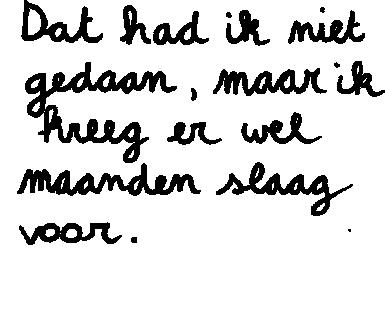 Dat had ik niet
gedaan, maar ik
kreeg er wel
maanden slaag
voor.